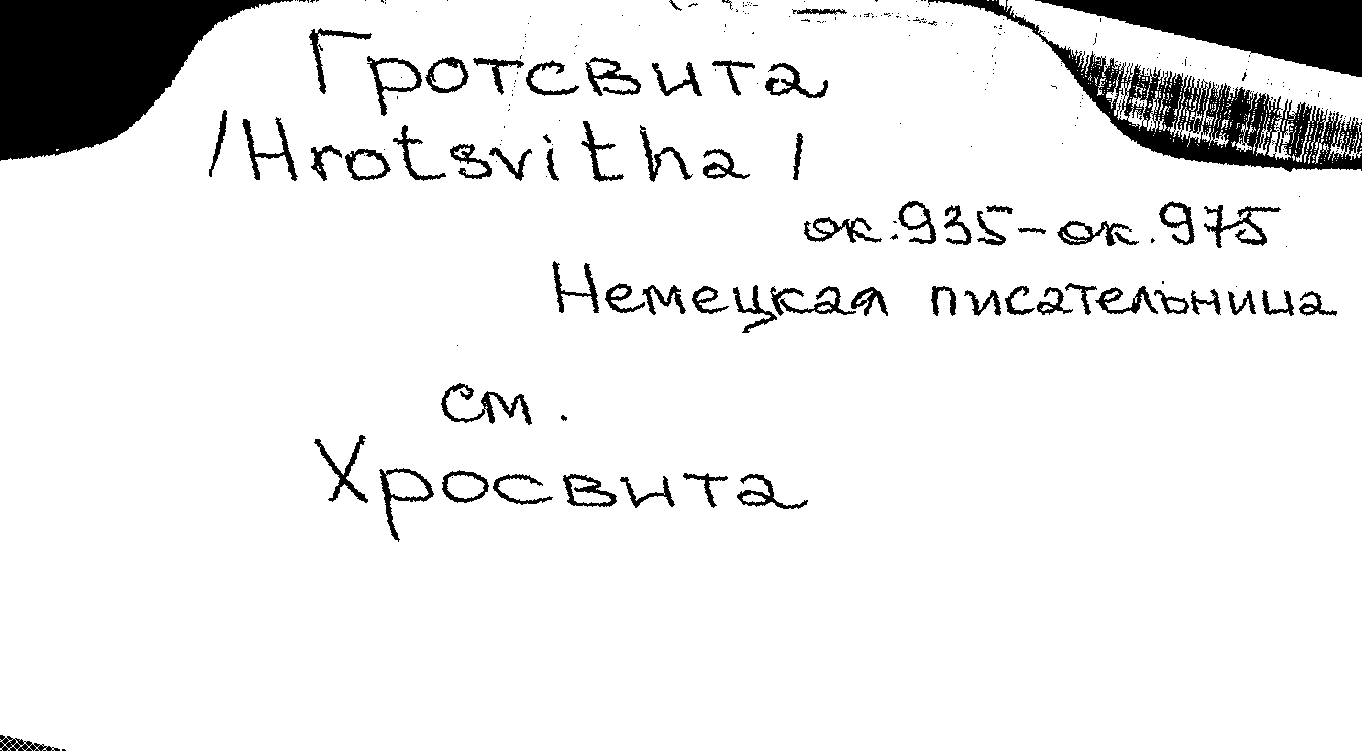 Гротсвита
/Hrotsvitha/
ок. 935-ок. 975
Немецкая писательница
см.
Хросвита